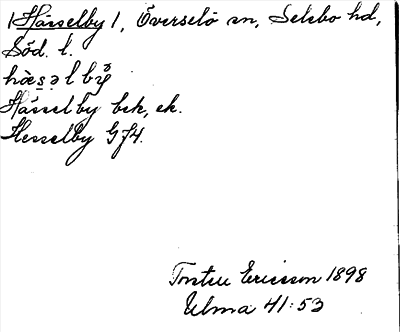 1 Hässelby 1, Överselö sn, Selebo hd,
Söd. l.
hæ̀s̱əlbȳ̌
Hässelby bek, ek.
Hesselby G 74.
Torsten Ericsson 1898
Ulma 41:53